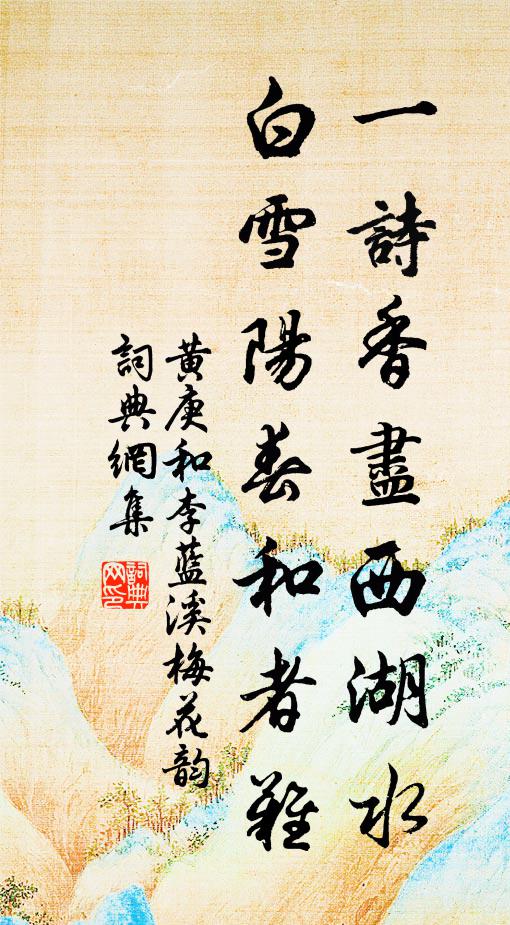 一詩香盡西湖水
白雪陽春和者難
黃庚和李藍溪梅花韵
詞典網集
詞典
网印